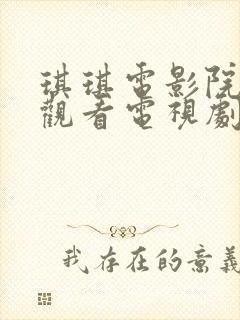 琪琪電影院
觀看電視劇
我存在的意義